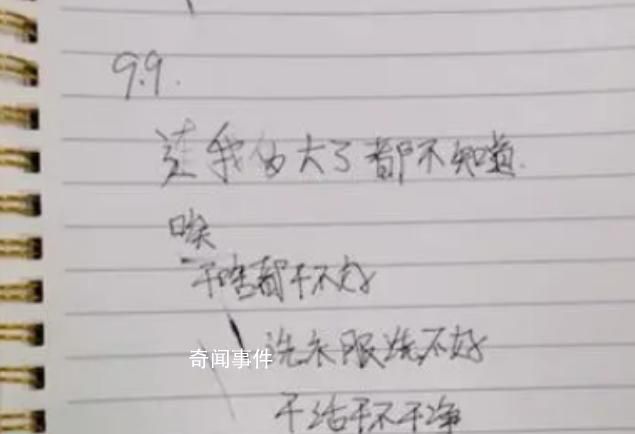 9.9.
连我多大了都不知道.
唉
干啥都干不好
洗衣服洗不好
奇闻事件
干活干不干净